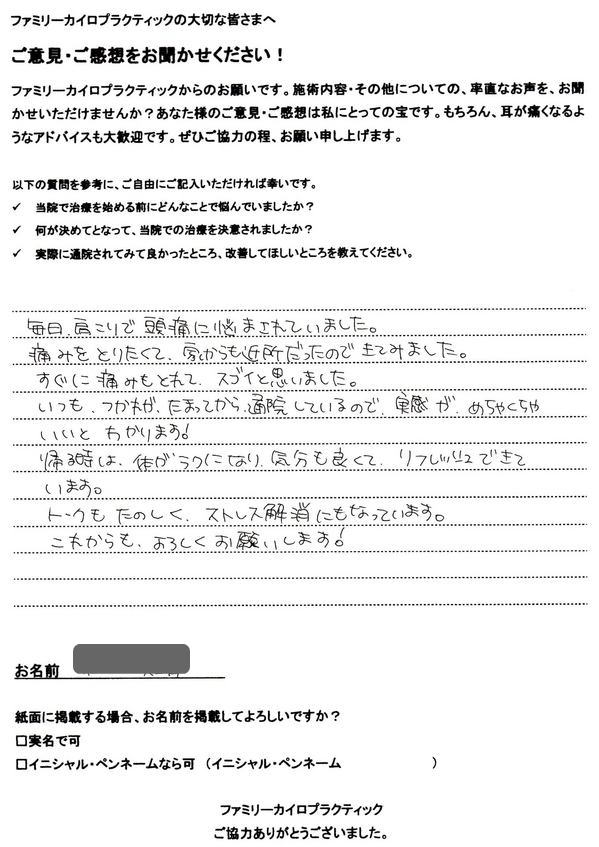 ファミリーカイロプラクティックの大切な皆さまへ
ご意見・ご感想をお聞かせください！
ファミリーカイロプラクティックからのお願いです。施術内容・その他についての、率直なお声を、お聞
かせいただけませんか？あなた様のご意見・ご感想は私にとっての宝です。もちろん、耳が痛くなるよ
うなアドバイスも大歓迎です。ぜひご協力の程、お願い申し上げます。
以下の質問を参考に、ご自由にご記入いただければ幸いです。
✓ 当院で治療を始める前にどんなことで悩んでいましたか？
✓ 何が決めてとなって、当院での治療を決意されましたか？
✓ 実際に通院されてみて良かったところ、改善してほしいところを教えてください。
毎日、肩こりで頭痛に悩まされていました。
痛みをとりたくて、家からも近所だったのできてみました。
すぐに痛みもとれて、スゴイと思いました。
いつも、つかれが、たまってから、通院しているので、実感が、めちゃくちゃ
いいとわかります！
帰る時は、体がラクになり、気分も良くて、リフレッシュできて
います。
トークもたのしく、ストレス解消にもなっています。
これからも、よろしくお願いします！
お名前
紙面に掲載する場合、お名前を掲載してよろしいですか？
□実名で可
□イニシャル・ペンネームなら可 （イニシャル・ペンネーム ）
ファミリーカイロプラクティック
ご協力ありがとうございました。